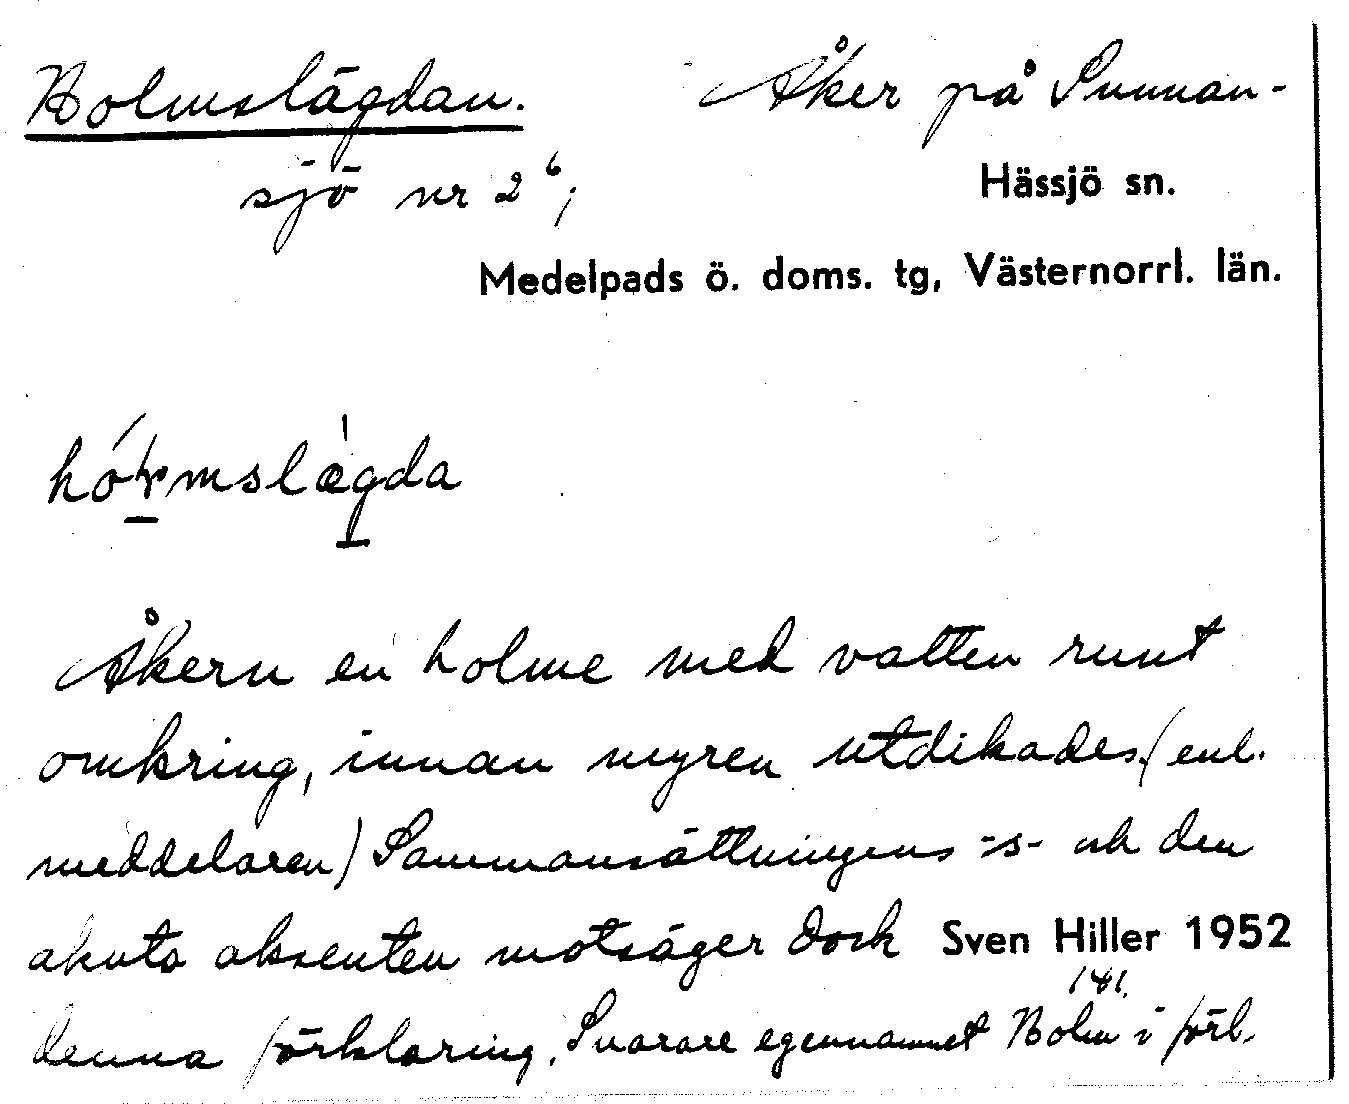 Holmslägdan. Åker på Sunnan-
sjö nr 2⁶;
Hässjö sn.
Medelpads ö. doms. tg, Västernorrl. län.
Åkern en holme med vatten runt
omkring, innan myren utdikades. (enl.
meddelaren) Sammansättningens -s- och den
akuta aksenten motsäger dock Sven Hiller 1952
141.
denna förklaring. Snarare egennamnet Holm i förl.